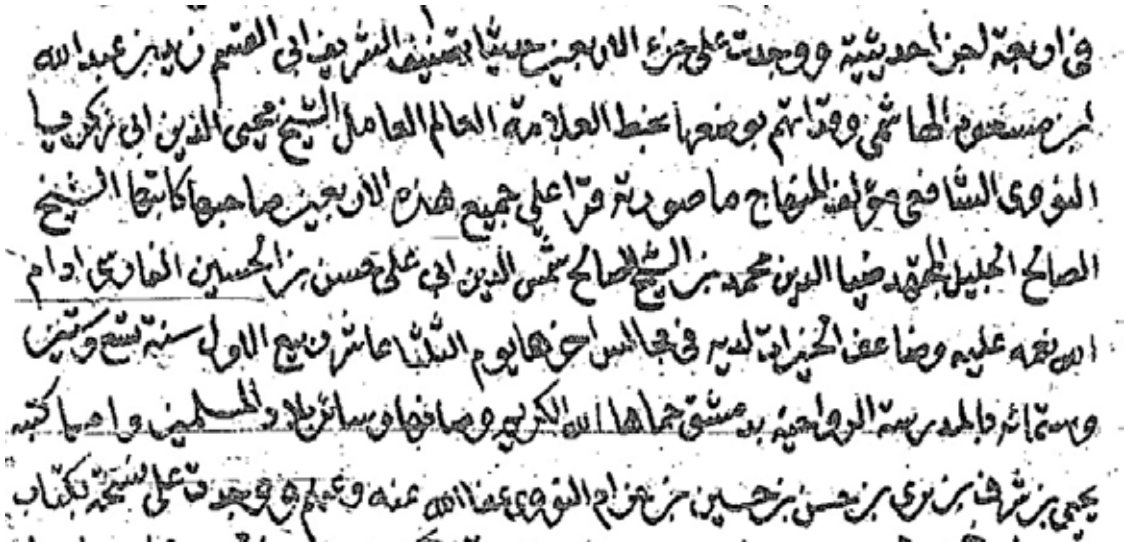 في اربعة اجزا حديثية ووجدت على جزء الاربعين حديثا تصنيف الشريف ابي القسم زيد بن عبد الله
ابن مسعود الهاشمي وقد اتم بوضعها بخط العلامة العالم العامل الشيخ محيى الدين ابي زكريا
النووى الشافعي مؤلف المنهاج ما صورته قرا علي جميع هذه الاربعين صاحبها كاتبها الشيخ
الصالح الجليل ضيا الدين محمد بن الشيخ الصالح شمس الدين ابي على حسن بن الحسين ادام
الله نعمه عليه وضاعف الخيرات لديه في مجالس اخرها يوم الثلثا عاشر ربيع الاول سنة تسع وستين
وستمائه بالمدرسة الرواحية بدمشق حماها الله الكريم وصانها وسائر بلاد المسلمين واهلها كتبه
يحيى بن شرف بن مرى بن حسن بن حسين بن حزام النووى عفا الله عنه وعنهم ووجدت على نسخة بكتاب